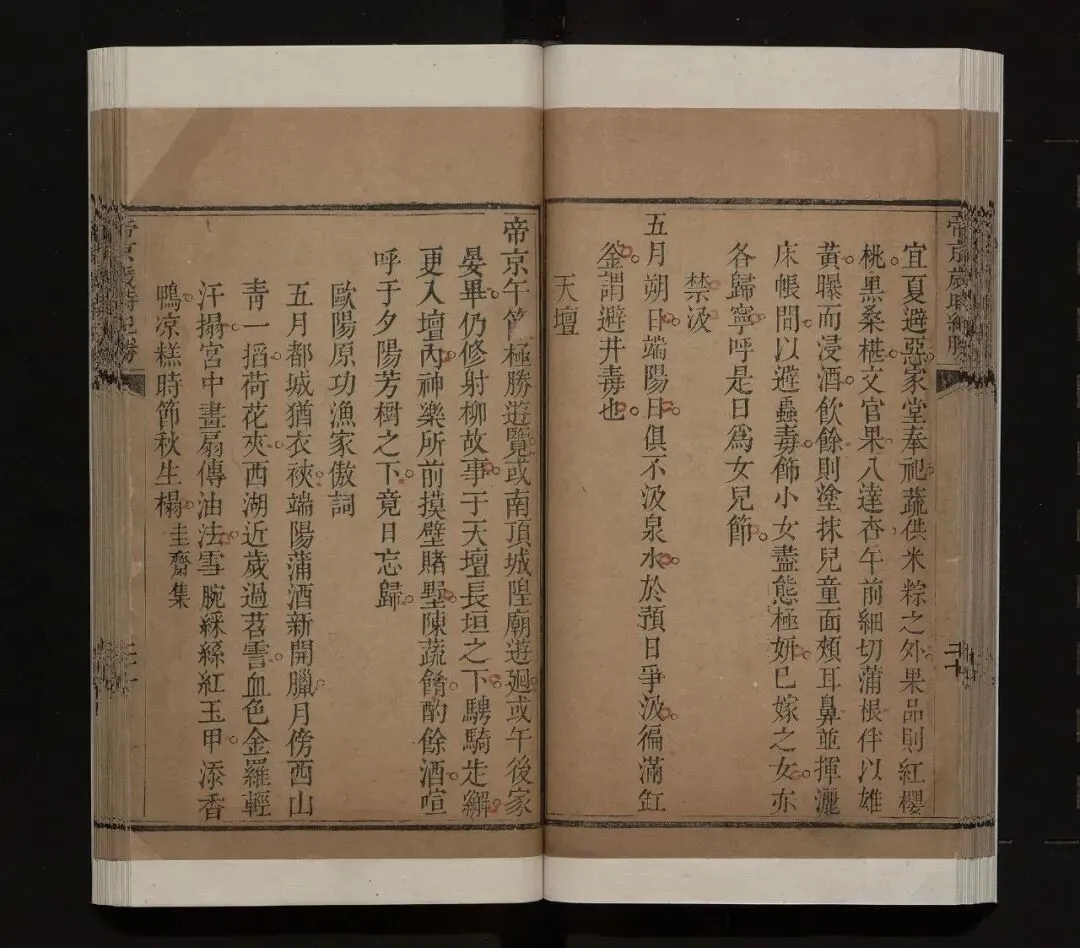 宜夏避惡家堂奉祀蔬供米粽之外果品則紅櫻
桃黑桑椹文官果八達杏午前細切蒲根伴以雄
黃曝而浸酒飲餘則塗抹兒童面頰耳鼻並揮灑
床帳間以避蟲毒飾小女盡態極妍已嫁之女亦
各歸寧呼是日爲女兒節
禁汲
五月朔日端陽日俱不汲泉水於預日爭汲徧滿缸
釜謂避井毒也
天壇
帝京午節極勝遊覽或南頂城隍廟遊廻或午後家
晏畢仍修射柳故事于天壇長垣之下騁騎走繲
更入壇內神樂所前摸壁賭墅陳蔬餚酌餘酒喧
呼于夕陽芳樹之下竟日忘歸
歐陽原功漁家傲詞
五月都城猶衣裌端陽蒲酒新開臘月傍西山
靑一掐荷花夾西湖近歲過苕霅血色金羅輕
汗搨宮中畫扇傳油法雪腕綵絲紅玉甲添香
鴨凉糕時節秋生榻圭齋集
帝京歲時紀勝
帝京歲時紀勝